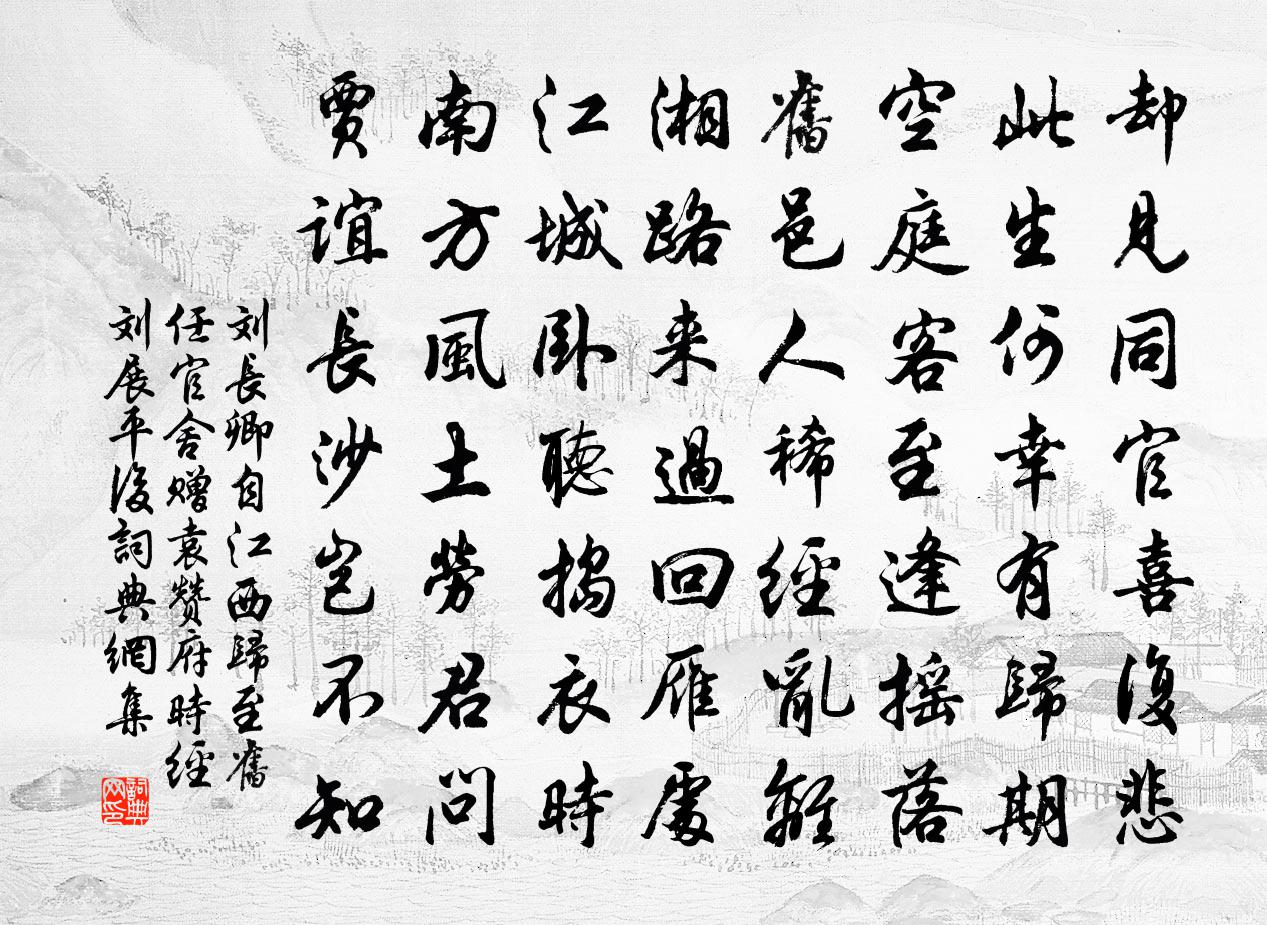 却見同官喜復悲
此生何幸有歸期
空庭客至逢摇落
舊邑人稀經亂離
湘路来過回雁處
江城卧聽搗衣時
南方風土勞君問
賈誼長沙豈不知
刘長卿自江西歸至舊
任官舍赠袁赞府時經
刘展平後詞典網集
詞典网印